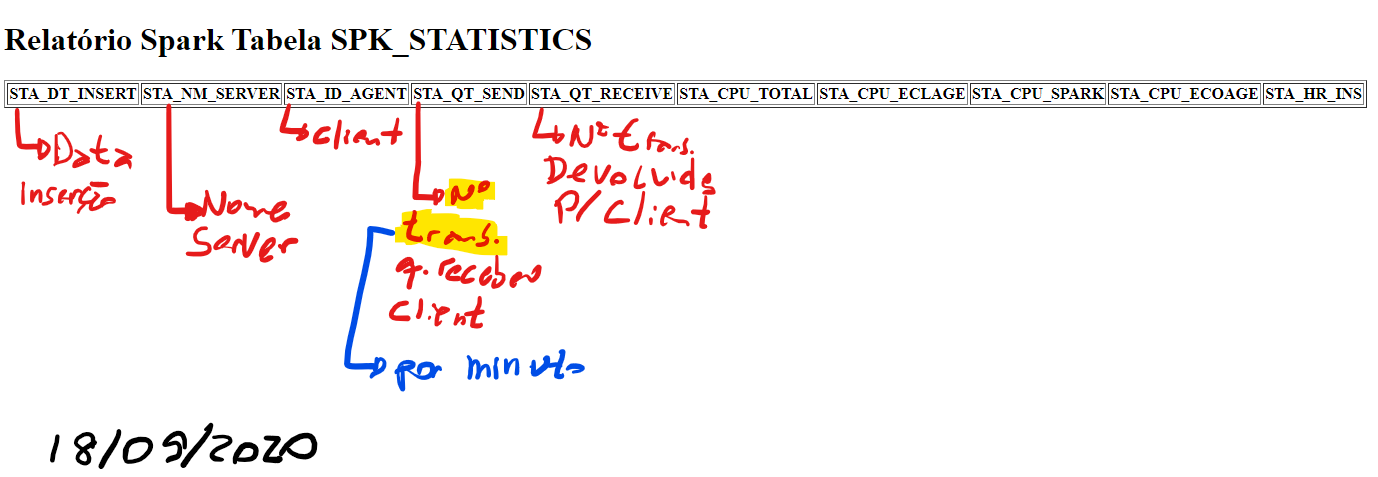 Relatório Spark Tabela SPK_STATISTICS
STA_DT_INSERT STA_NM_SERVER STA_ID_AGENT STA_QT_SEND STA_QT_RECEIVE STA_CPU_TOTAL STA_CPU_ECLAGE STA_CPU_SPARK STA_CPU_ECOAGE STA_HR_INS
Data
Inserção
Nome
Server
client
Nº
trans.
q. recebeu
client
por minuto
Nº trans.
Devolvida
P/ Client
18/09/2020